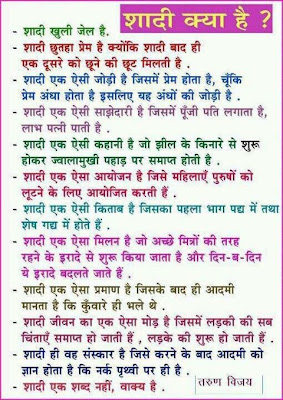 शादी क्या है ?
- शादी खुली जेल है.
- शादी छुतहा प्रेम है क्योंकि शादी बाद ही
एक दूसरे को छूने की छूट मिलती है .
- शादी एक ऐसी जोड़ी है जिसमें प्रेम होता है, चूंकि
प्रेम अंधा होता है इसलिए यह अंधों की जोड़ी है .
- शादी एक ऐसी साझेदारी है जिसमें पूँजी पति लगाता है,
लाभ पत्नी पाती है .
- शादी एक ऐसी कहानी है जो झील के किनारे से शुरू
होकर ज्वालामुखी पहाड़ पर समाप्त होती है .
- शादी एक ऐसा आयोजन है जिसे महिलाएँ पुरुषों को
लूटने के लिए आयोजित करती हैं .
- शादी एक ऐसी किताब है जिसका पहला भाग पद्य में तथा
शेष गद्य में होते हैं .
- शादी एक ऐसा मिलन है जो अच्छे मित्रों की तरह
रहने के इरादे से शुरू किया जाता है और दिन-ब-दिन
ये इरादे बदलते जाते हैं .
- शादी एक ऐसा प्रमाण है जिसके बाद ही आदमी
मानता है कि कुँवारे ही भले थे .
- शादी जीवन का एक ऐसा मोड़ है जिसमें लड़की की सब
चिंताएँ समाप्त हो जाती हैं , लड़के की शुरू हो जाती हैं .
- शादी ही वह संस्कार है जिसे करने के बाद आदमी को
ज्ञान होता है कि नर्क पृथ्वी पर ही है .
- शादी एक शब्द नहीं, वाक्य है .
तरुण विजय